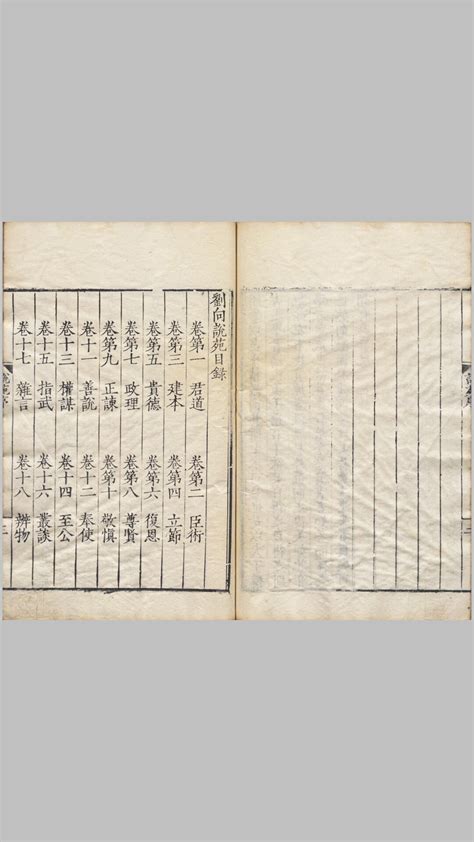 劉向說苑目錄
卷第一 君道 卷第二 臣術
卷第三 建本 卷第四 立節
卷第五 貴德 卷第六 復恩
卷第七 政理 卷第八 尊賢
卷第九 正諫 卷第十 敬慎
卷十一 善說 卷十二 奉使
卷十三 權謀 卷十四 至公
卷十五 指武 卷十六 叢談
卷十七 雜言 卷十八 辨物